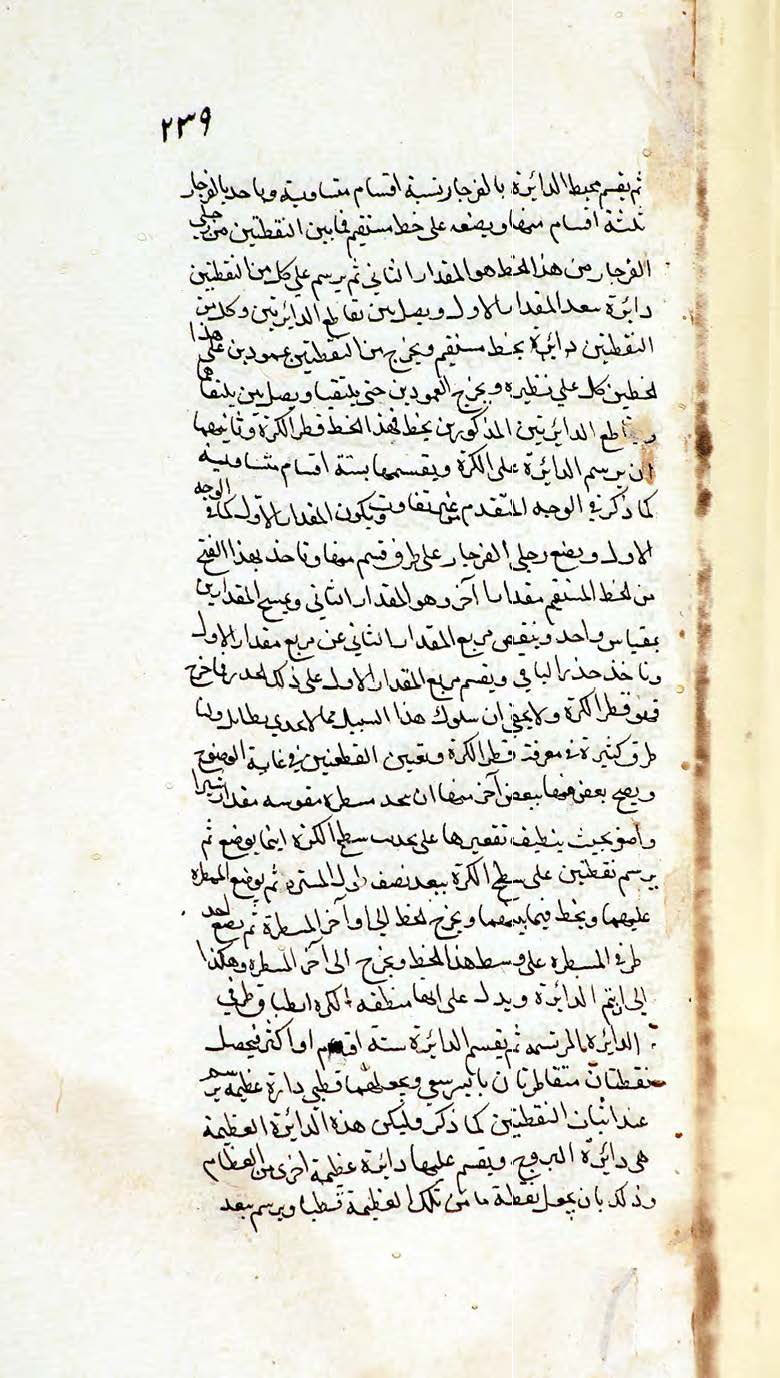 ٢٣٩
ثم يقسم محيط الدائرة بالفرجار بستة اقسام متساوية وياخذ بالفرجار
ثلثة اقسام منها ويضعه على خط مستقيم فما بين النقطتين من رجلي
الفرجار من هذا الخط هو المقدار الثاني ثم يرسم علي كل من النقطتين
دائرة ببعد المقدار الاول ويصل بين تقاطع الدائرتين وكل من
النقطتين دائرة بخط مستقيم ويخرج من النقطتين عمودين على هذا
الخطين كل علي نظيره ويخرج العمودين حتى يلتقيا ويصل بين ملتقاهما
وتقاطع الدائرتين المذكورين بخط فهذا الخط قطر الكرة وثانيهما
ان يرسم الدائرة على الكرة ويقسمها بستة اقسام متساوية
كما ذكر في الوجه المتقدم من غير تفاوت ويكون المقدار الاول كما في الوجه
الاول ويضع رجلي الفرجار على طرفي قسم منها وناخذ بهذا الفتح
من الخط المستقيم مقدارا آخر وهو المقدار الثاني ويمسح المقدارين
بمقياس واحد وينقص مربع المقدار الثاني عن مربع مقدار الاول
وناخذ جذر الباقي ويقسم مربع المقدار الاول على ذلك الجذر فما خرج
فهو قطر الكرة ولا يخفي ان سلوك هذا السبيل مما لا يجدي بطائل ولنا
طرق كثيرة في معرفة قطر الكرة وتعين القطعتين في غاية الوضوح
ويصح بعض منها ببعض آخر منها ان يجد مسطرة مقوسه مقدار شبرا
واصغر بحيث ينطبق تقعيرها على محدب سطح الكرة اينما يوضع ثم
يرسم نقطتين على سطح الكرة ببعد نصف طول المسطره ثم يوضع المسطره
عليهما ويخط فيما بينهما ويخرج الخط الي اواخر المسطرة ثم يضع احد
طرفي المسطره على وسط هذا الخط ويخرج الى آخر المسطره وهكذا
الي ان يتم الدائرة ويدل على انها منطقه الكره انطباق طرفي
الدائرة المرتسمه ثم يقسم الدائرة ستة اقسام او اكثر فيحصل
نقطتان متقاطرتان باتيرسعي ويجعلهما قطبي دارة عظيمه يرسم
عند اثبات النقطتين كما ذكر وليكن هذه الدائرة العظيمة
هي دائرة البروج ويقسم عليها دائرة عظيمة اخرى من العظام
وذلك بان يجعل نقطة ما من تلك العظيمة قطبا ويرسم ببعد